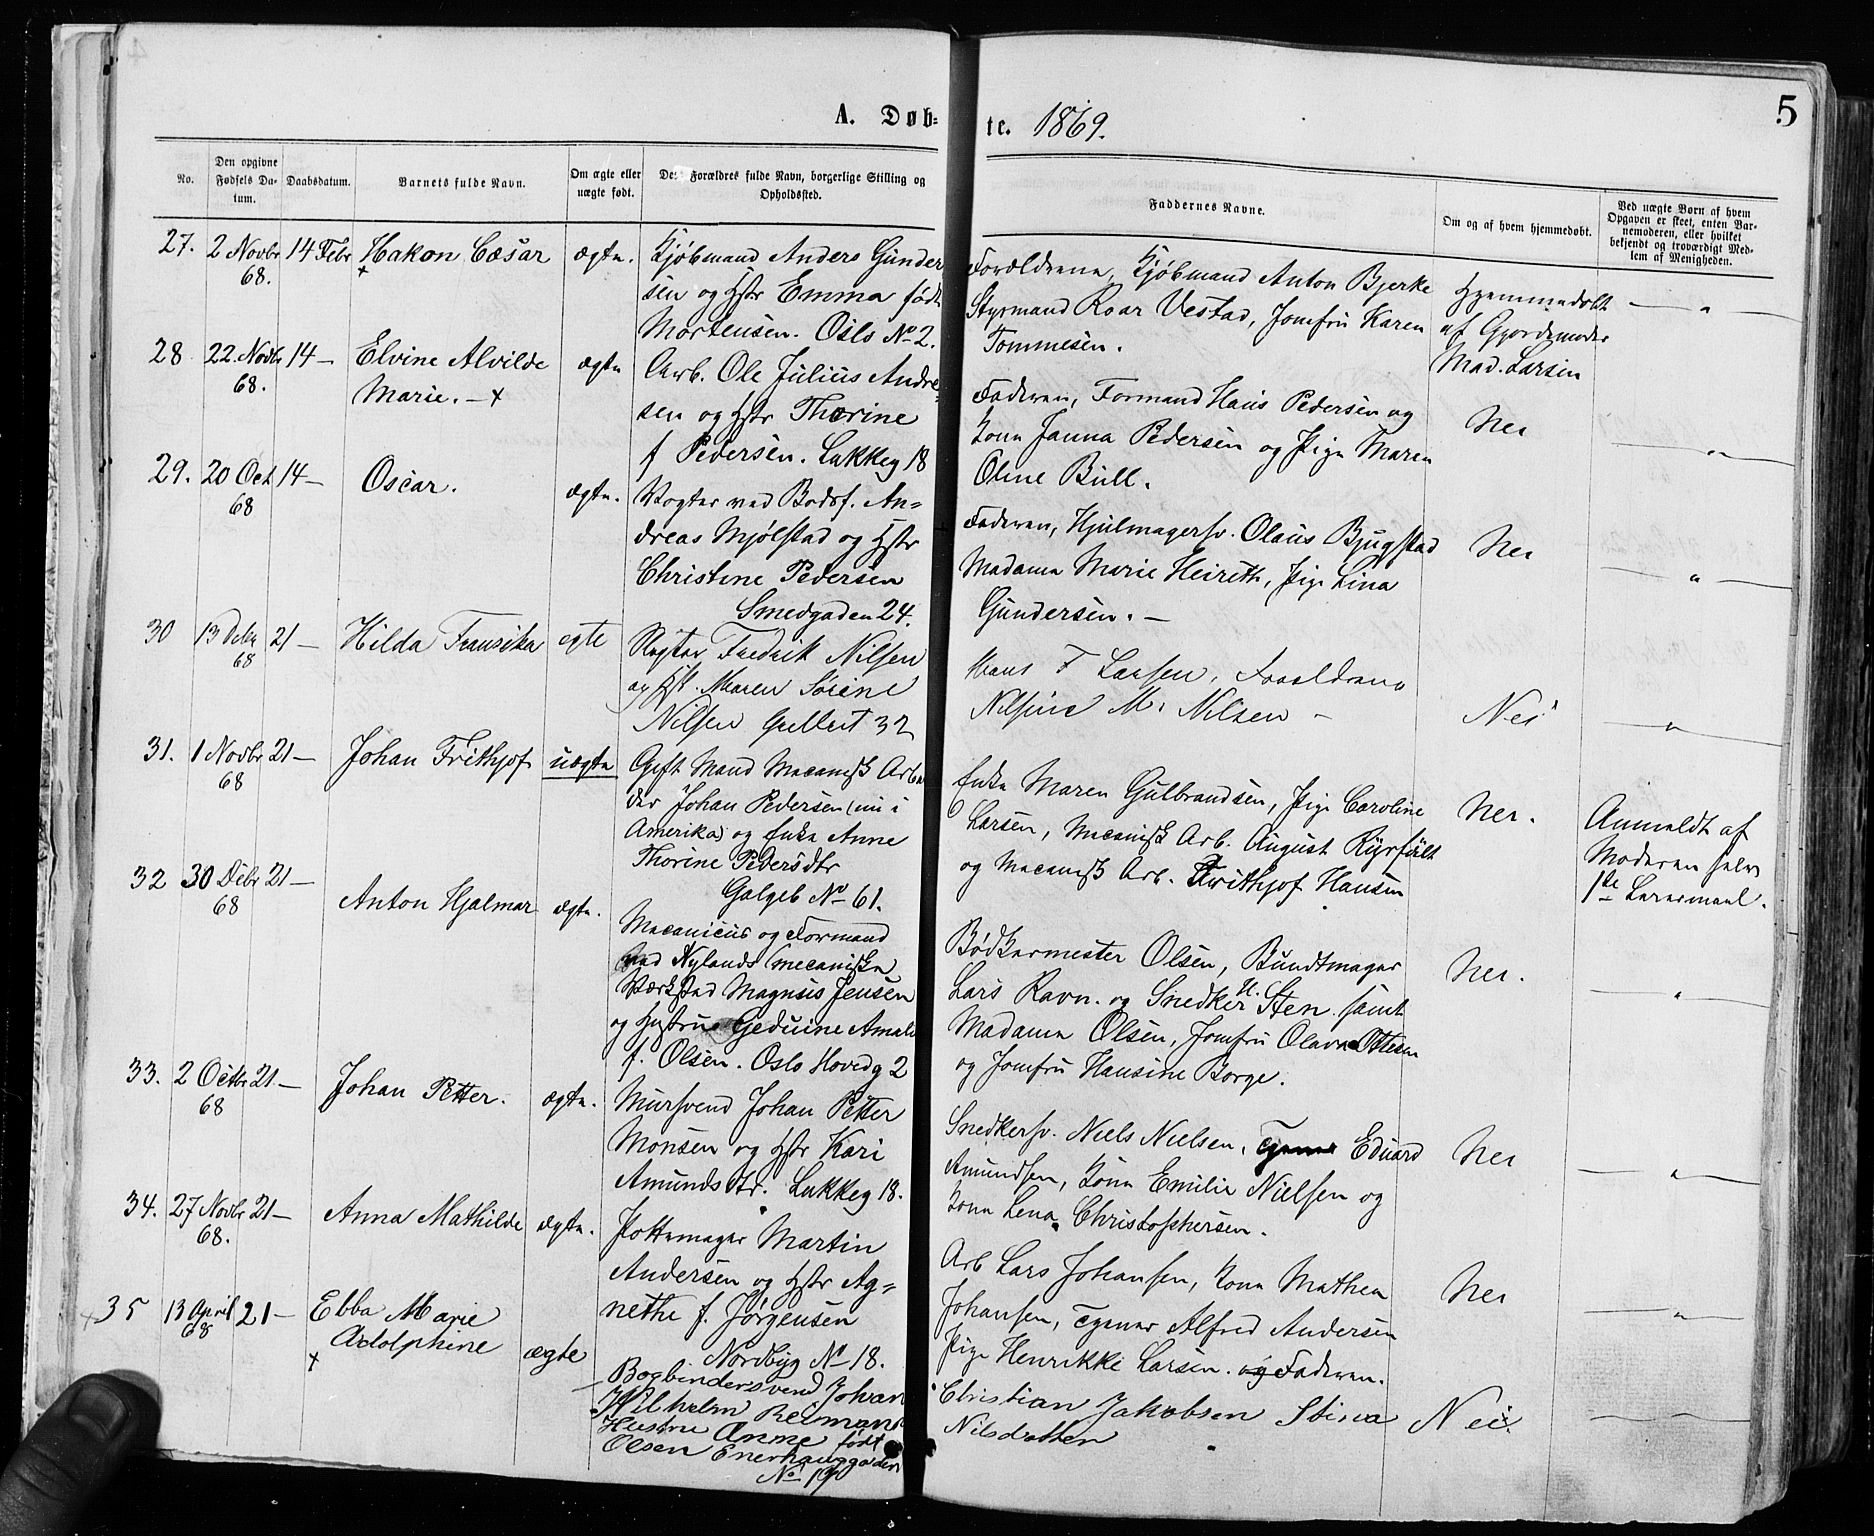 5
A. Døb-
te. 1869.
No.
Den opgivne
Fødsels Da-
tum.
Daabsdatum.
Barnets fulde Navn.
Om ægte eller
uægte født.
Forældres fulde Navn, borgerlige Stilling og
Opholdssted.
Faddernes Navne.
Om og af hvem hjemmedøbt.
Ved uægte Børn af hvem
Opgaven er skeet, enten Bar-
nemoderen, eller hvilket
bekjendt og troværdigt Med-
lem af Menigheden.
27. 2 Novbr 14 Febr Hakon Cæsar ægte.
68.
Kjøbmand Anders Gunder
sen og Hstr Emma født
Mortensen. Oslo No 2.
Forældrene, Kjøbmand Anton Bjerke
Styrmand Roar Vestad, Jomfru Karen
Tommesen.
Hjemmedøbt
af Gjordemoder
Mad. Larsen
28 22. Novbr 14 — Elvine Alvilde ægte
68. Marie. — x
Arb. Ole Julius Andre
sen og Hstr Thorine
f Pedersen. Lakkeg 18
Faderen, Formand Hans Pedersen og
Kone Janna Pedersen og Pige Maren
Oline Bull.
Nei
29. 20 Oct 14 — Oscar. ægte.
68
Vogter ved Bodsf. An-
dreas Mjølstad og Hstr
Christine Pedersen
Smedgaden 24.
Faderen, Hjulmagersv. Olaus Bjugstad
Madame Marie Heireth, Pige Lina
Gundersen. —
Nei
30 13 Debr 21 — Hilda Fransiska egte
68
Slagter Fredrik Nilsen
og Hst. Maren Sørine
Nilsen Gullert 32
Hans F Larsen, Forældrene
Nilsine M. Nilsen —
Nei
31. 1 Novbr 21 — Johan Frithjof uægte
68
Gift Mand Mecanisk Arbei
der Johan Pedersen (nu i
Amerika) og Enke Anne
Thorine Pedersdtr
Galgeb No 61.
Enke Maren Gulbrandsen, Pige Caroline
Larsen, Mecanisk Arb. August Ryrfält
og Mecanisk Arb. Frithjof Hansen
Nei.
Anmeldt af
Moderen selv
1ste Leiermaal.
32 30 Debr 21 — Anton Hjalmar ægte.
68
Mecanicus og Formand
ved Nylands mecaniske
Værksted Magnus Jensen
og Hustru Geduine Amali
f. Olsen. Oslo Hovedg 2
Bødkermester Olsen, Bundtmager
Lars Ravn. og Snedker H. Sten. samt
Madame Olsen, Jomfru Olava Ottesen
og Jomfru Hansine Borge.
Nei.
33. 2 Octbr 21 — Johan Petter. ægte.
68
Mursvend Johan Petter
Monsen og Hstr Kari
Amundsdtr. Lakkeg 18.
Snedkersv. Niels Nielsen, Eduard
Amundsen, Kone Emilie Nielsen og
Kone Lena Christophersen.
Nei
34. 27 Novbr 21 — Anna Mathilde ægte.
68.
Pottemager Martin
Andersen og Hstr Ag-
nethe f. Jørgensen
Nordbyg No 18.
Arb Lars Johansen, Kone Mathea
Johansen, Tyener Alfred Andersen
Pige Henrikke Larsen. og Faderen.
Nei
35 13 April 21 — Ebba Marie
68 Adolphine ægte
x
Bogbindersvend Johan
Wilhelm Reimann
Hustru Anne født
Olsen Enerhauggaden
No 19
Christian Jakobsen Stina
Nilsdatter
Nei.